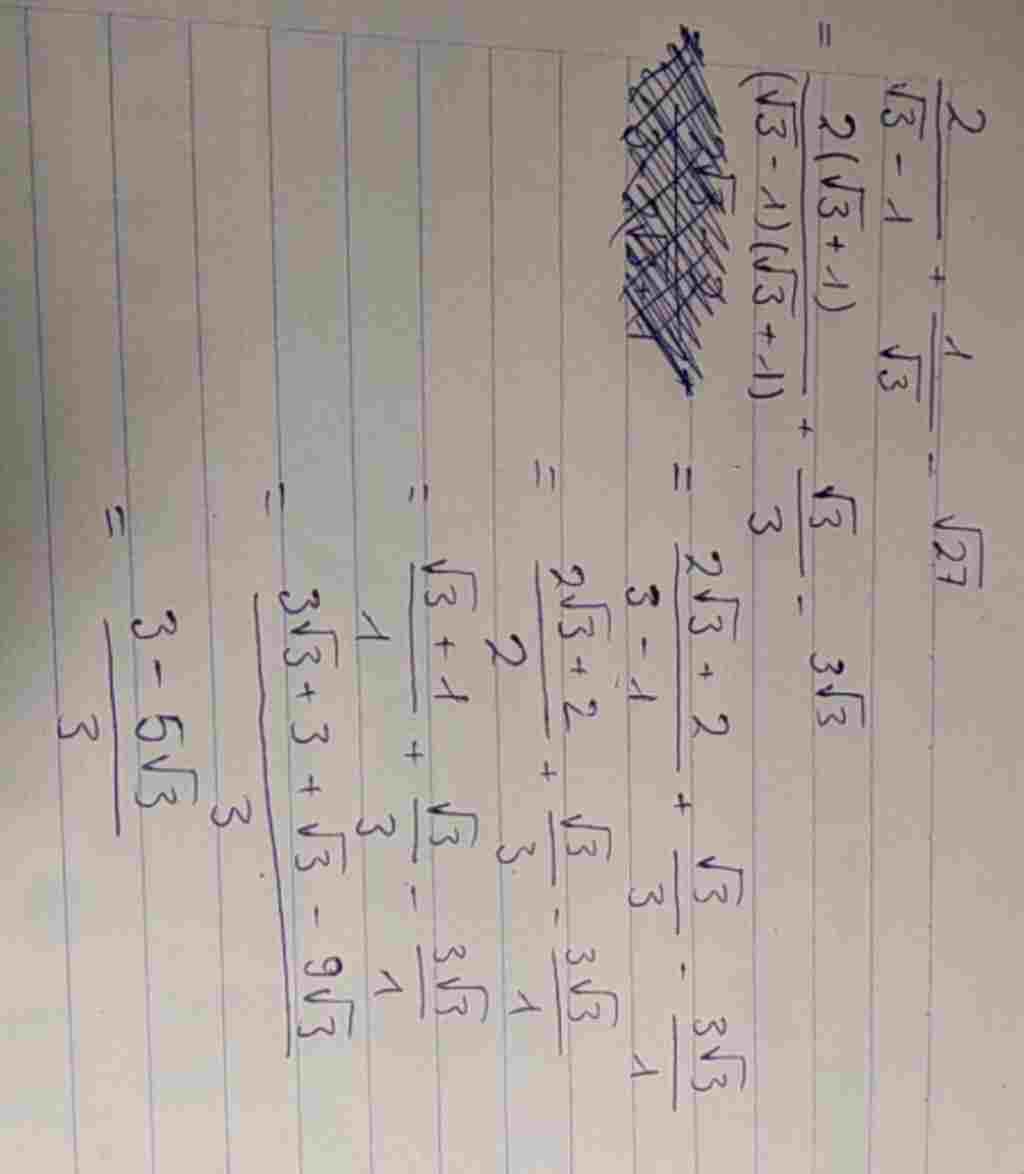 2/(√3 - 1) + 1/√3 - √27
= 2(√3 + 1)/((√3 - 1)(√3 + 1)) + √3/3 - 3√3
= (2√3 + 2)/(3 - 1) + √3/3 - 3√3/1
= (2√3 + 2)/2 + √3/3 - 3√3/1
= (√3 + 1)/1 + √3/3 - 3√3/1
= (3√3 + 3 + √3 - 9√3)/3
= (3 - 5√3)/3